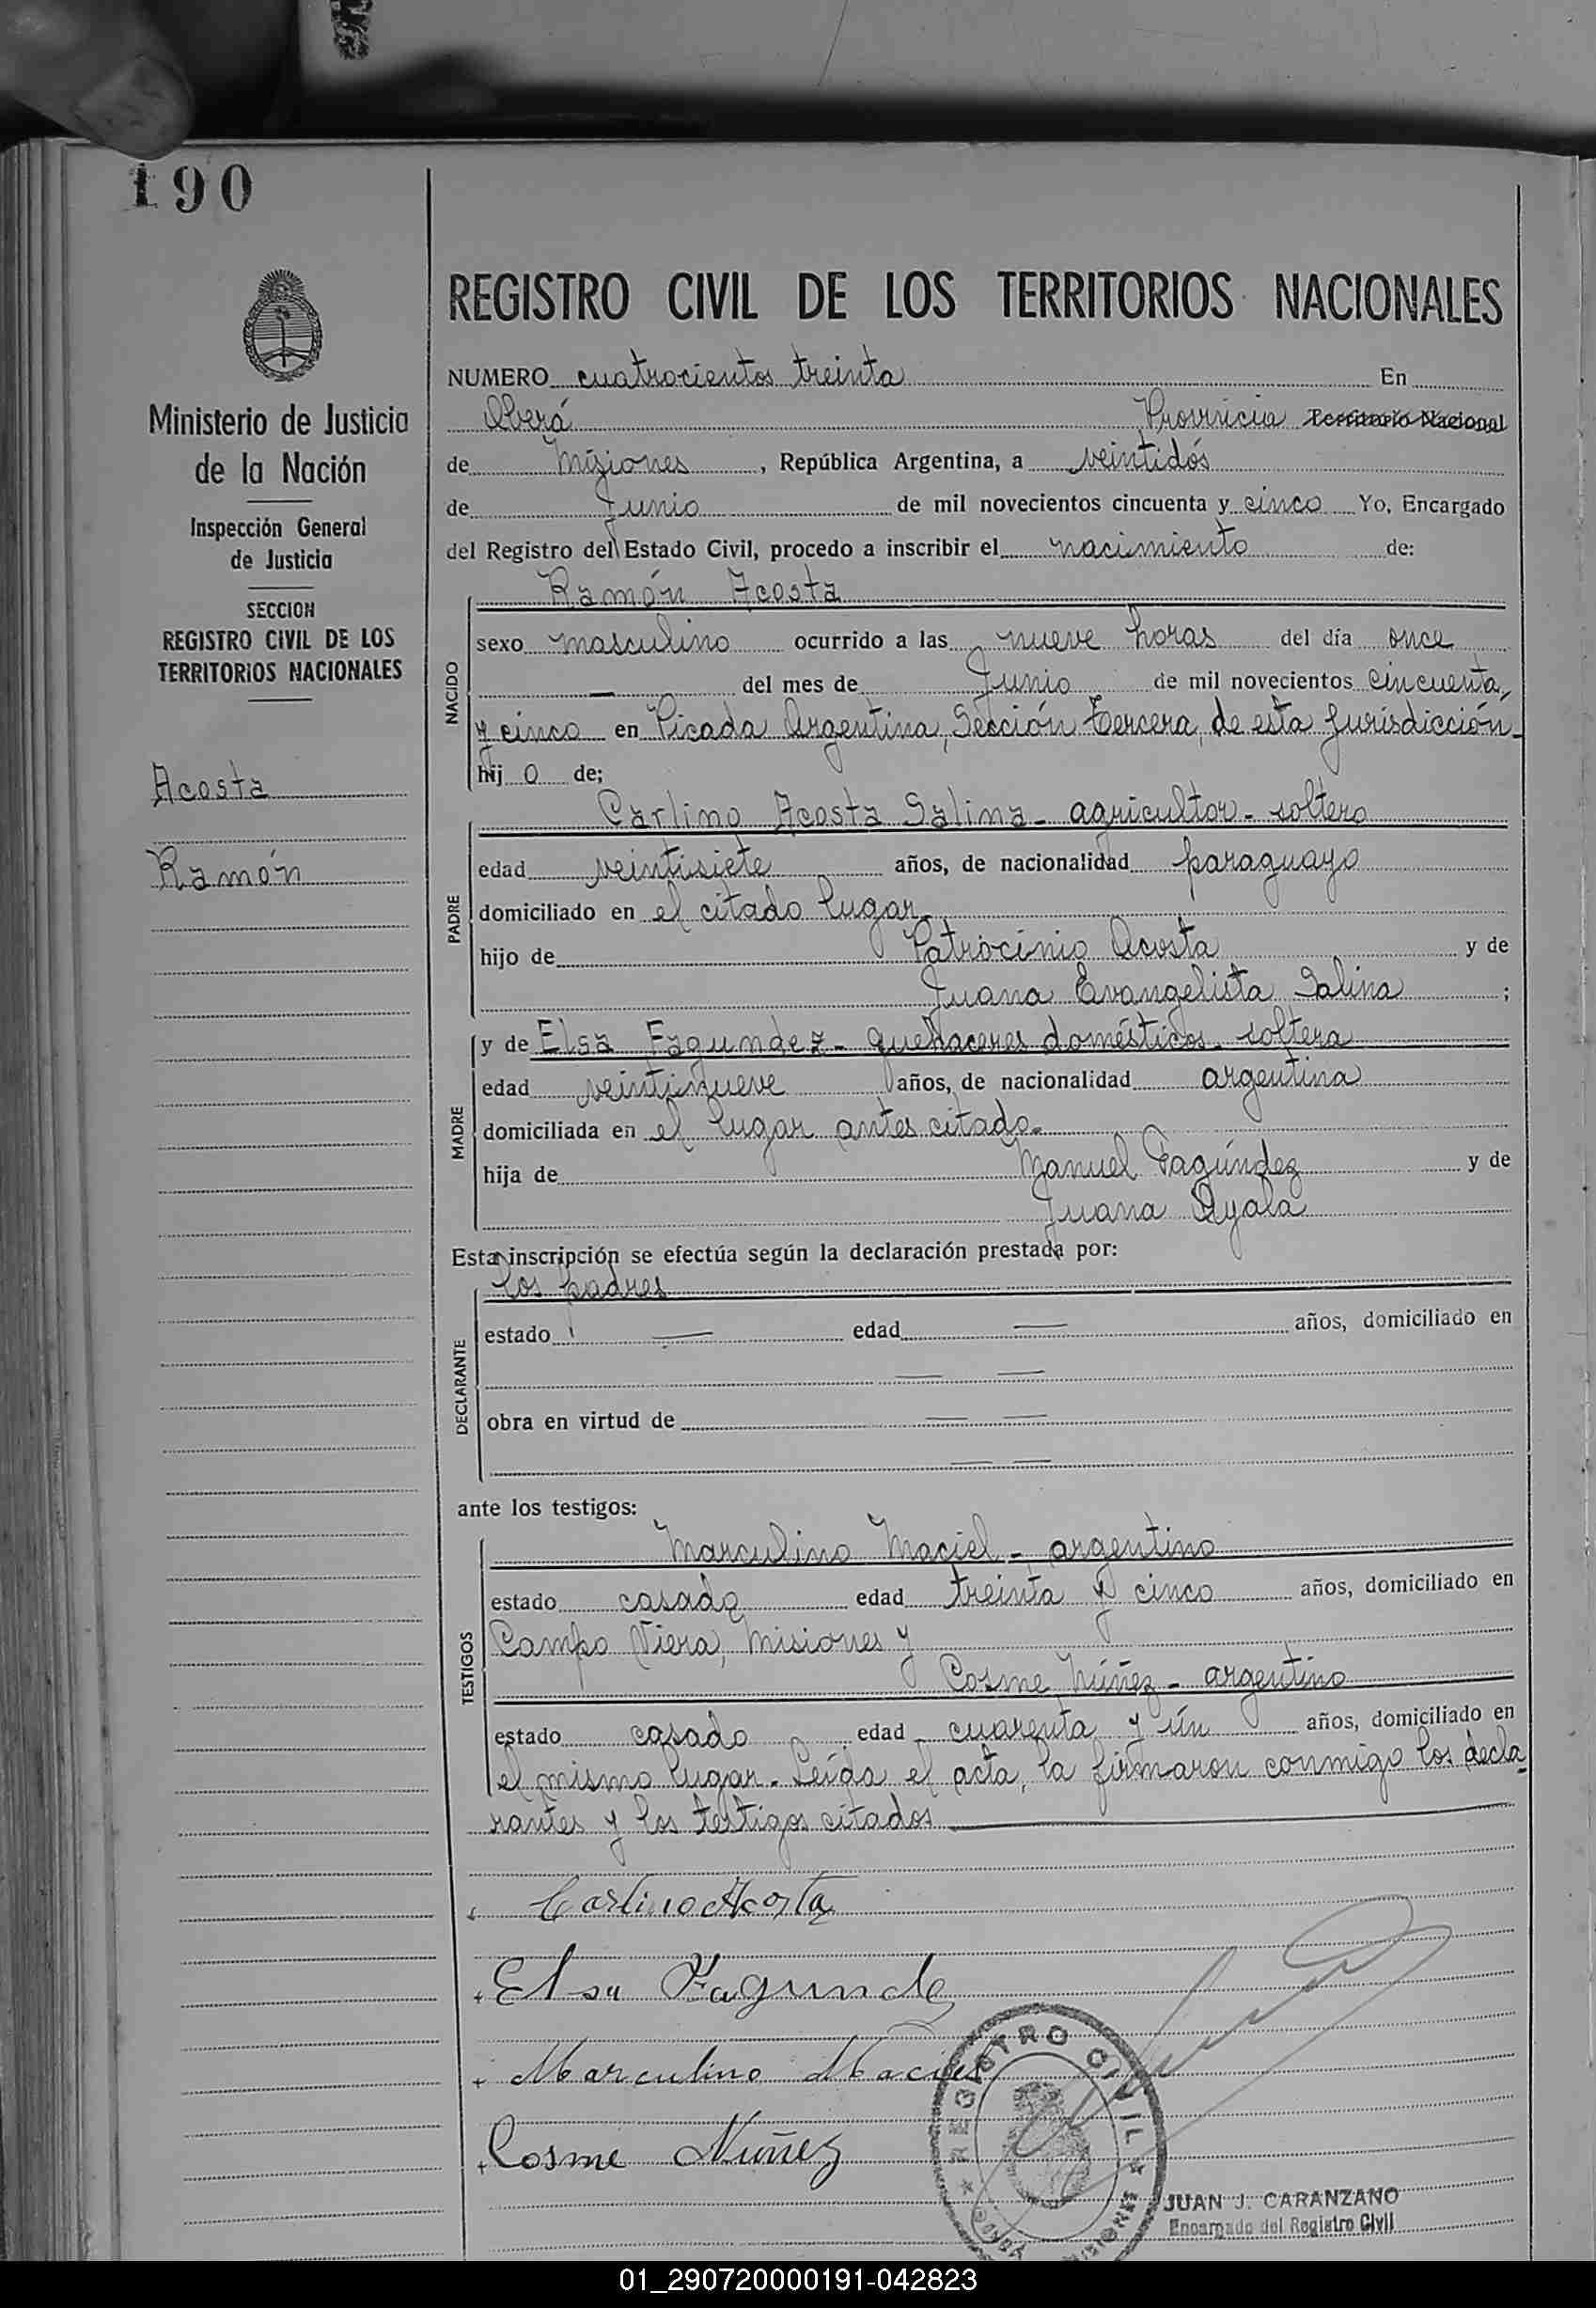 190
Ministerio de Justicia
de la Nación
Inspección General
de Justicia
SECCION
REGISTRO CIVIL DE LOS
TERRITORIOS NACIONALES
Acosta
Ramón
REGISTRO CIVIL DE LOS TERRITORIOS NACIONALES
NUMERO cuatrocientos treinta En
Oberá Provincia Territorio Nacional
de Misiones, República Argentina, a veintidós
de Junio de mil novecientos cincuenta y cinco Yo, Encargado
del Registro del Estado Civil, procedo a inscribir el nacimiento de:
NACIDO
Ramón Acosta
sexo masculino ocurrido a las nueve horas del día once
— del mes de Junio de mil novecientos cincuenta
y cinco en Picada Argentina, Sección Tercera, de esta Jurisdicción-
hij o de;
PADRE
Carlino Acosta Salina - agricultor - soltero
edad veintisiete años, de nacionalidad paraguayo
domiciliado en el citado lugar-
hijo de Patrocinio Acosta y de
Juana Evangelista Salina ;
MADRE
y de Elsa Fagundez - quehaceres domésticos - soltera
edad veintinueve años, de nacionalidad argentina
domiciliada en el lugar antes citado-
hija de Manuel Fagúndez y de
Juana Ayala
Esta inscripción se efectúa según la declaración prestada por:
DECLARANTE
los padres
estado — edad — años, domiciliado en
— —
obra en virtud de — —
— —
ante los testigos:
TESTIGOS
Marculino Maciel - argentino
estado casado edad treinta y cinco años, domiciliado en
Campo Viera, Misiones y
Cosme Núñez - argentino
estado casado edad cuarenta y ún años, domiciliado en
el mismo lugar. Leída el acta, la firmaron conmigo los decla-
rantes y los testigos citados
Carlino Acosta
Elsa Fagundez
Marculino Maciel
Cosme Nuñez
REGISTRO CIVIL
MISIONES
JUAN J. CARANZANO
Encargado del Registro Civil
01_290720000191-042823